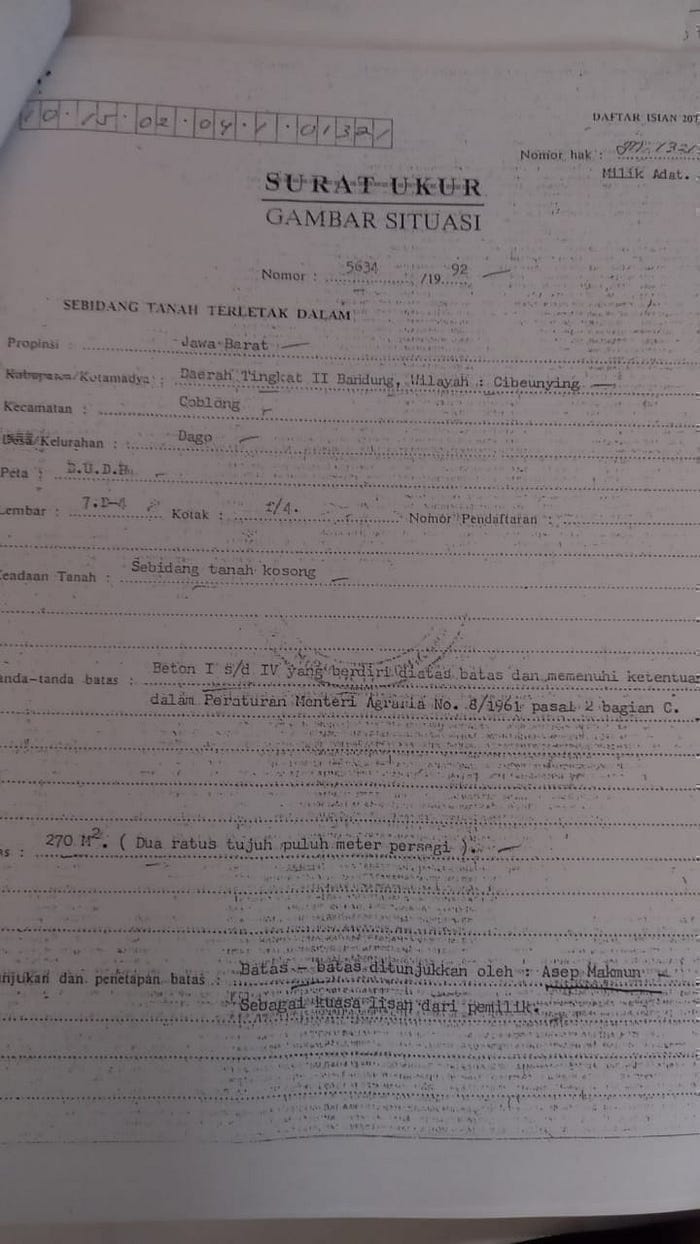 10.15.02.04.1.01321
DAFTAR ISIAN
Nomor hak :
Milik Adat.
SURAT UKUR
GAMBAR SITUASI
Nomor : 5634 /19 92
SEBIDANG TANAH TERLETAK DALAM
Propinsi : Jawa Barat
Kabupaten/Kotamadya : Daerah Tingkat II Bandung, Wilayah : Cibeunying
Kecamatan : Coblong
Desa/Kelurahan : Dago
Peta :
Lembar : Kotak : Nomor Pendaftaran :
Keadaan Tanah : Sebidang tanah kosong
anda-tanda batas : Beton I s/d IV yang berdiri diatas batas dan memenuhi ketentua
dalam Peraturan Menteri Agraria No. 8/1961 pasal 2 bagian C.
as : 270 M². ( Dua ratus tujuh puluh meter persegi ).
njukan dan penetapan batas : Batas - batas ditunjukkan oleh : Asep Makmun
Sebagai kuasa lisan dari pemilik.